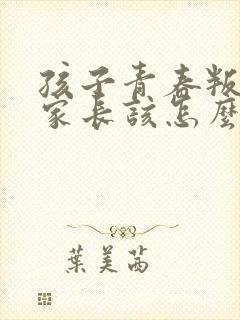 孩子青春叛
家長該怎麼
葉美茜